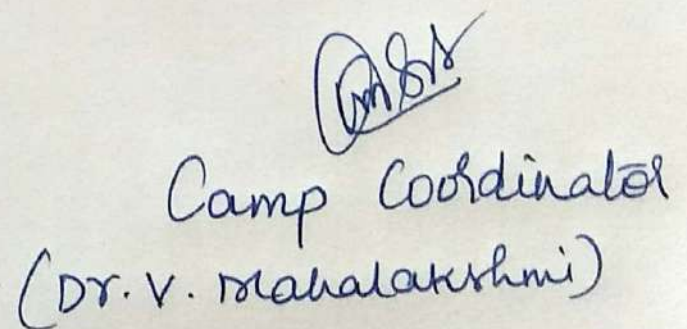 Camp Coordinator
(Dr. V. Mahalakshmi)